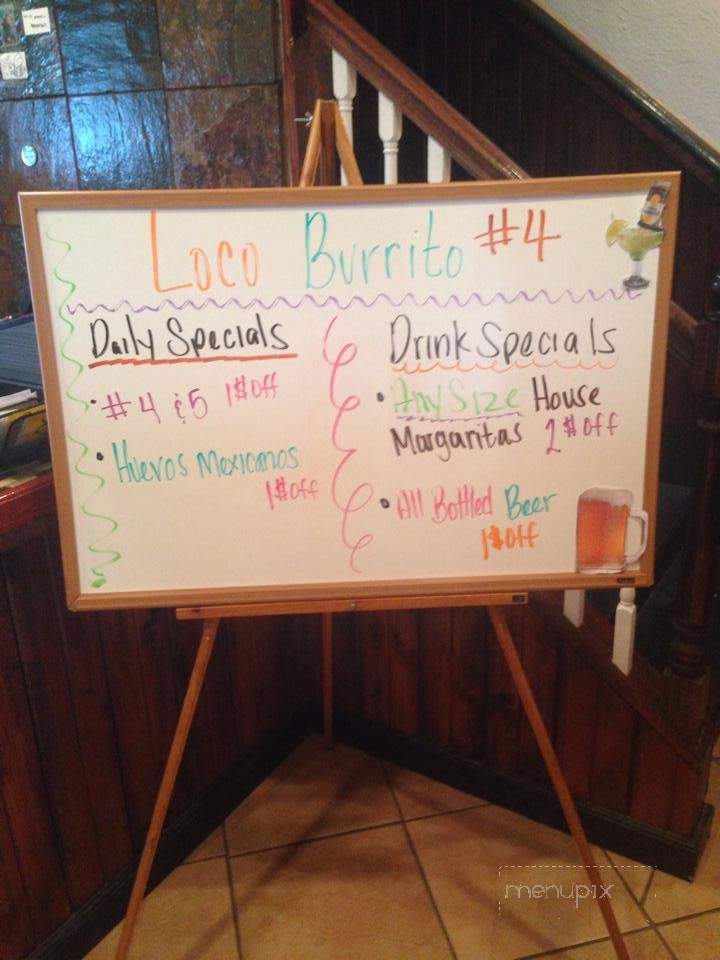 Loco Burrito #4
Daily Specials
• #4 & 5 1$ off
• Huevos Mexicanos
1$ off
Drink Specials
• Any Size House
Margaritas 2$ off
• All Bottled Beer
1$ off
menupix